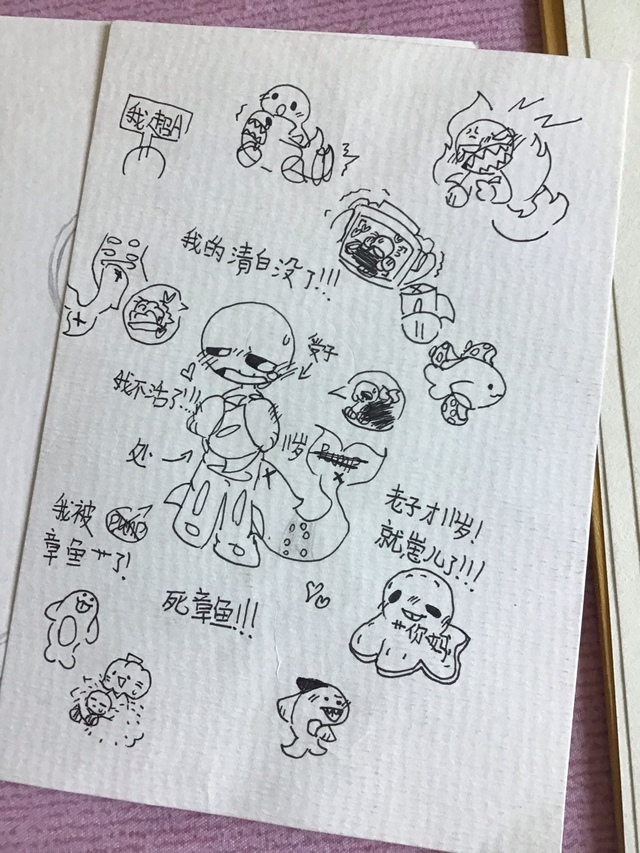 我超A
我的清白没了!!!
受子
我不活了!!!
处
11岁
我被
章鱼艹了!
老子才11岁!
就崽儿了!!!
死章鱼!!!
艹你妈